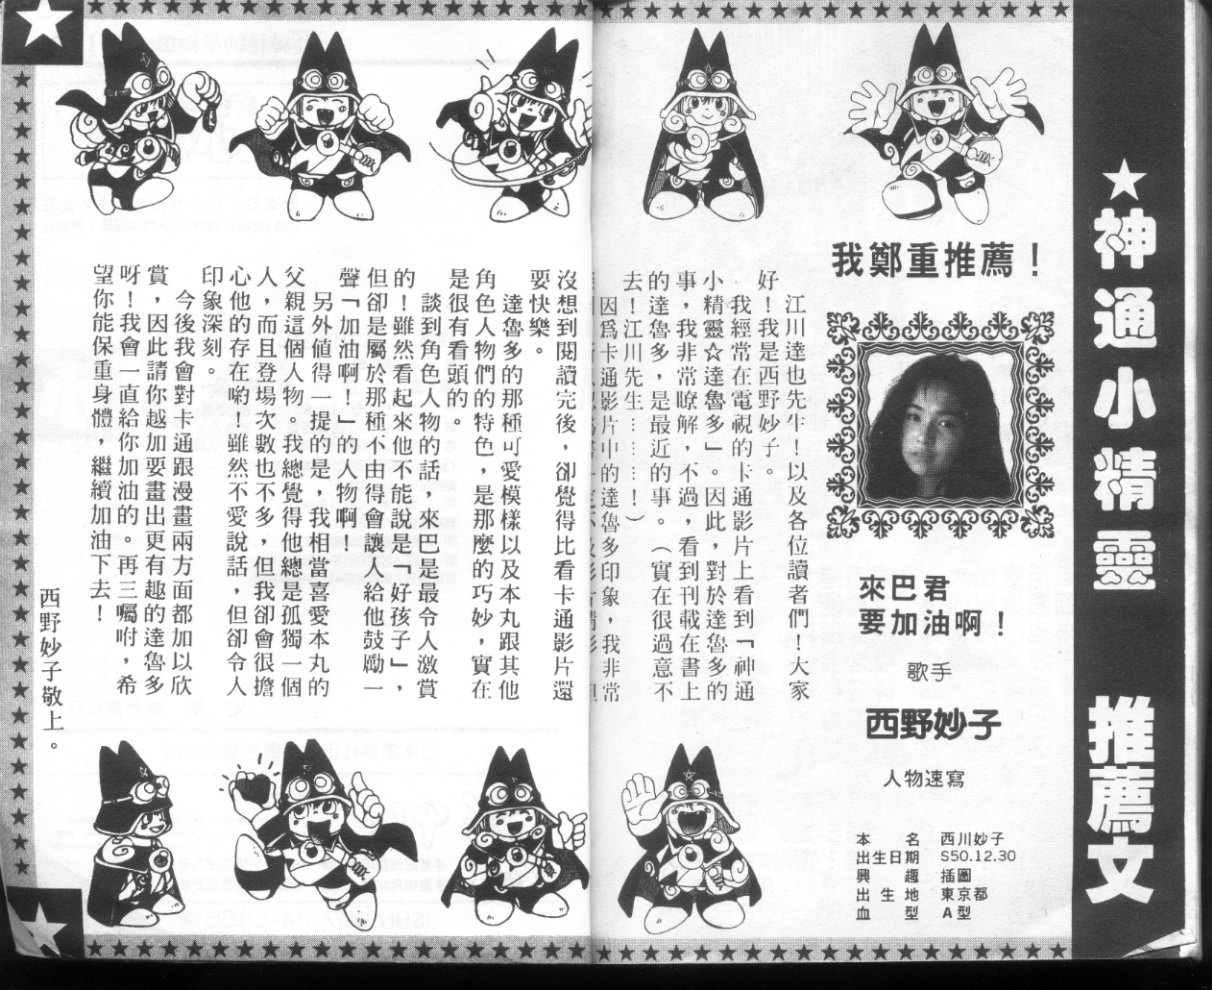 ★神通小精靈 推薦文
我鄭重推薦！
來巴君
要加油啊！
歌手
西野妙子
人物速寫
本名 西川妙子
出生日期 S50.12.30
興趣 插圖
出生地 東京都
血型 A型
江川達也先生！以及各位讀者們！大家
好！我是西野妙子。
我經常在電視的卡通影片上看到「神通
小精靈☆達魯多」。因此，對於達魯多的
事，我非常瞭解，不過，看到刊載在書上
的達魯多，是最近的事。（實在很過意不
去！江川先生……！）
因爲卡通影片中的達魯多印象，我非常
沒想到閱讀完後，卻覺得比看卡通影片還
要快樂。
達魯多的那種可愛模樣以及本丸跟其他
角色人物們的特色，是那麼的巧妙，實在
是很有看頭的。
談到角色人物的話，來巴是最令人激賞
的！雖然看起來他不能說是「好孩子」，
但卻是屬於那種不由得會讓人給他鼓勵一
聲「加油啊！」的人物啊！
另外值得一提的是，我相當喜愛本丸的
父親這個人物。我總覺得他總是孤獨一個
人，而且登場次數也不多，但我卻會很擔
心他的存在喲。雖然不愛說話，但卻令人
印象深刻。
今後我會對卡通跟漫畫兩方面都加以欣
賞，因此請你越加要畫出更有趣的達魯多
呀！我會一直給你加油的。再三囑咐，希
望你能保重身體，繼續加油下去！
西野妙子敬上。